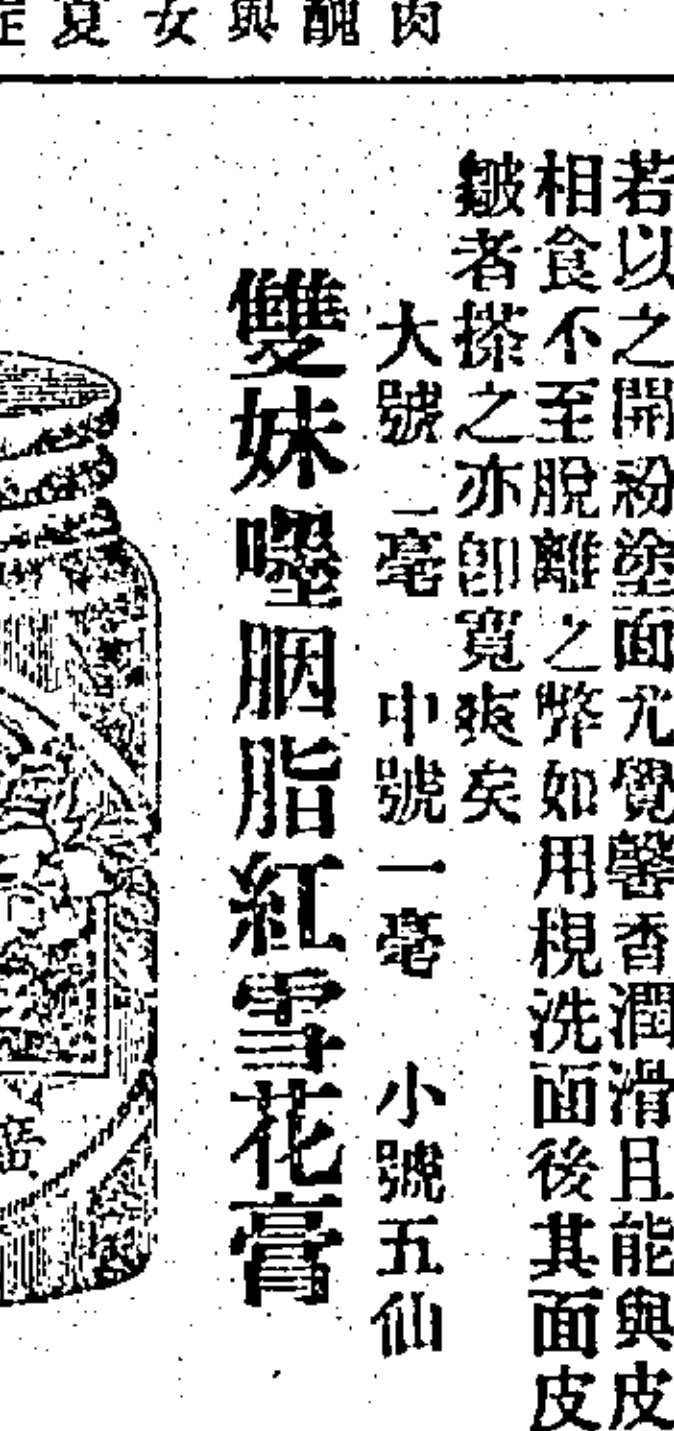 肉
醜
與
女
夏
若以之開粉塗面尤覺馨香潤滑且能與皮
相食不至脫離之弊如用梘洗面後其面皮
皺者搽之亦卽寬爽矣
大號二毫 中號一毫 小號五仙
雙妹嚜胭脂紅雪花膏